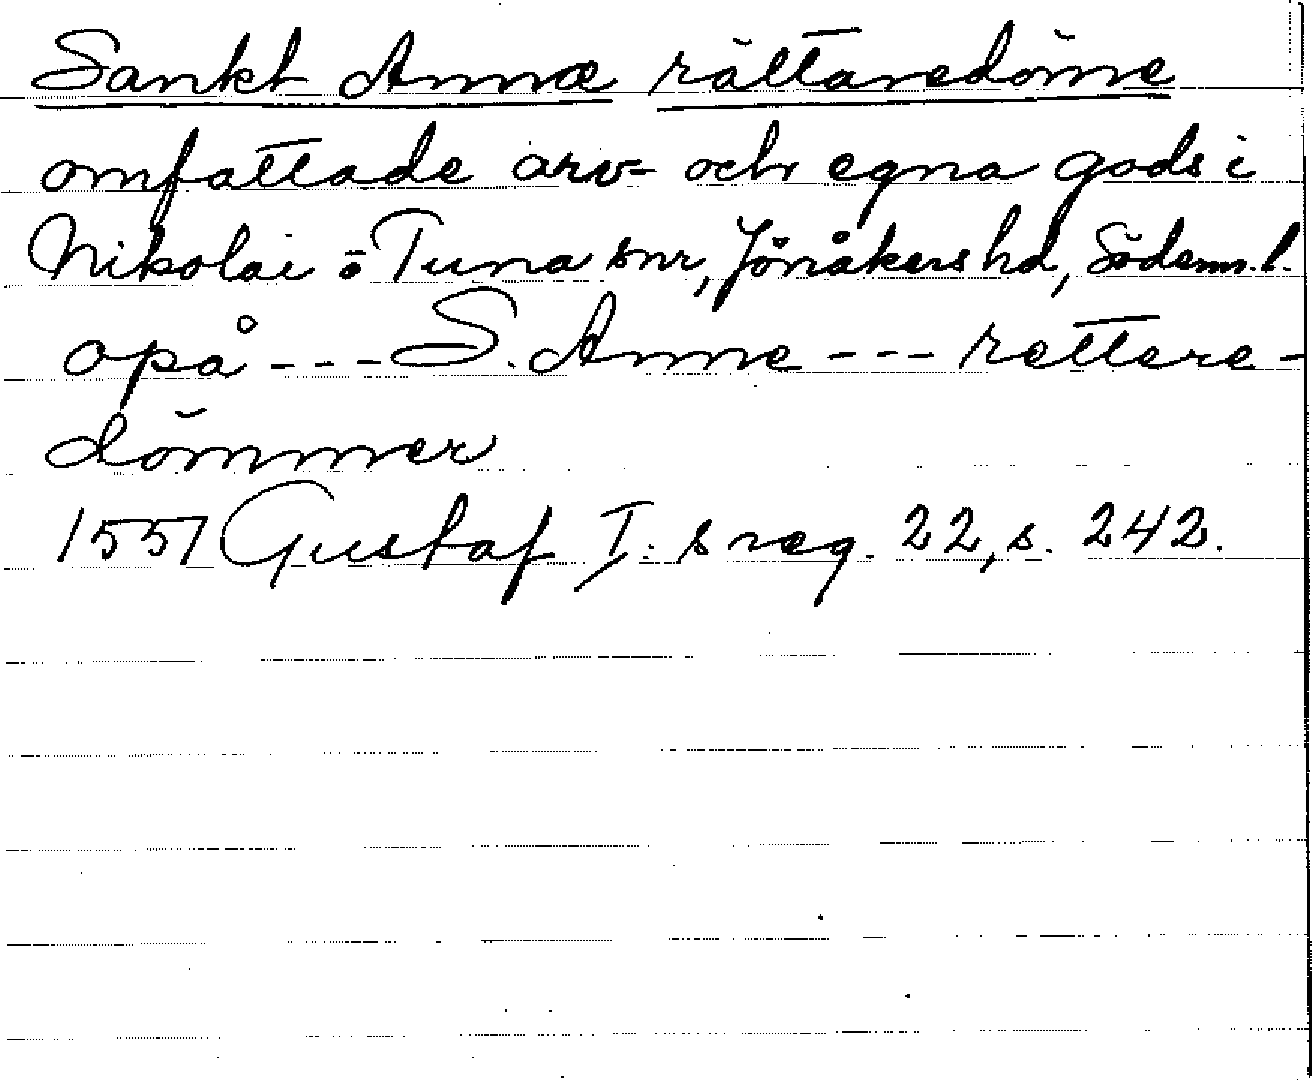 Sankt Annæ rättaredöme
omfattade arv- och egna gods i
Nikolai o Tuna snr, Jönåkers hd, Söderm. l.
opå --- S. Anne --- rettere-
dömmer
1557 Gustaf I:s reg. 22, s. 242.